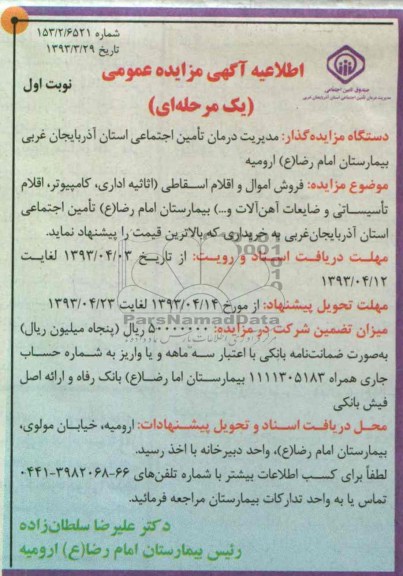 شماره ۱۵۳/۲/۶۵۲۱
تاریخ ۱۳۹۳/۳/۲۹
نوبت اول
اطلاعیه آگهی مزایده عمومی
(یک مرحله‌ای)
صندوق تأمین اجتماعی
مدیریت درمان تأمین اجتماعی استان آذربایجان غربی
دستگاه مزایده‌گذار: مدیریت درمان تأمین اجتماعی استان آذربایجان غربی
بیمارستان امام رضا(ع) ارومیه
موضوع مزایده: فروش اموال و اقلام اسقاطی (اثاثیه اداری، کامپیوتر، اقلام
تأسیساتی و ضایعات آهن‌آلات و...) بیمارستان امام رضا(ع) تأمین اجتماعی
استان آذربایجان‌غربی به خریداری که بالاترین قیمت را پیشنهاد نماید.
مهلت دریافت اسناد و رویت: از تاریخ ۱۳۹۳/۰۴/۰۳ لغایت
۱۳۹۳/۰۴/۱۲
مهلت تحویل پیشنهاد: از مورخ ۱۳۹۳/۰۴/۱۴ لغایت ۱۳۹۳/۰۴/۲۳
ParsNamadData
میزان تضمین شرکت در مزایده: ۵۰۰۰۰۰۰۰ ریال (پنجاه میلیون ریال)
به‌صورت ضمانت‌نامه بانکی با اعتبار سه ماهه و یا واریز به شماره حساب
جاری همراه ۱۱۱۱۳۰۵۱۸۳ بیمارستان اما رضا(ع) بانک رفاه و ارائه اصل
فیش بانکی
محل دریافت اسناد و تحویل پیشنهادات: ارومیه، خیابان مولوی،
بیمارستان امام رضا(ع)، واحد دبیرخانه با اخذ رسید.
لطفاً برای کسب اطلاعات بیشتر با شماره تلفن‌های ۶۶-۳۹۸۲۰۶۸-۰۴۴۱
تماس یا به واحد تدارکات بیمارستان مراجعه فرمائید.
دکتر علیرضا سلطان‌زاده
رئیس بیمارستان امام رضا(ع) ارومیه